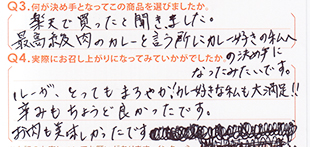 Q3.何が決め手となってこの商品を選びましたか。
楽天で買ったと聞きました。
最高級肉のカレーと言う所にカレー好きの私への決め手に
Q4.実際にお召し上がりになってみていかがでしたか
なったみたいです。
ルーが、とってもまろやか!カレー好きな私も大満足!!
辛みもちょうど良かったです。
お肉も美味しかったです